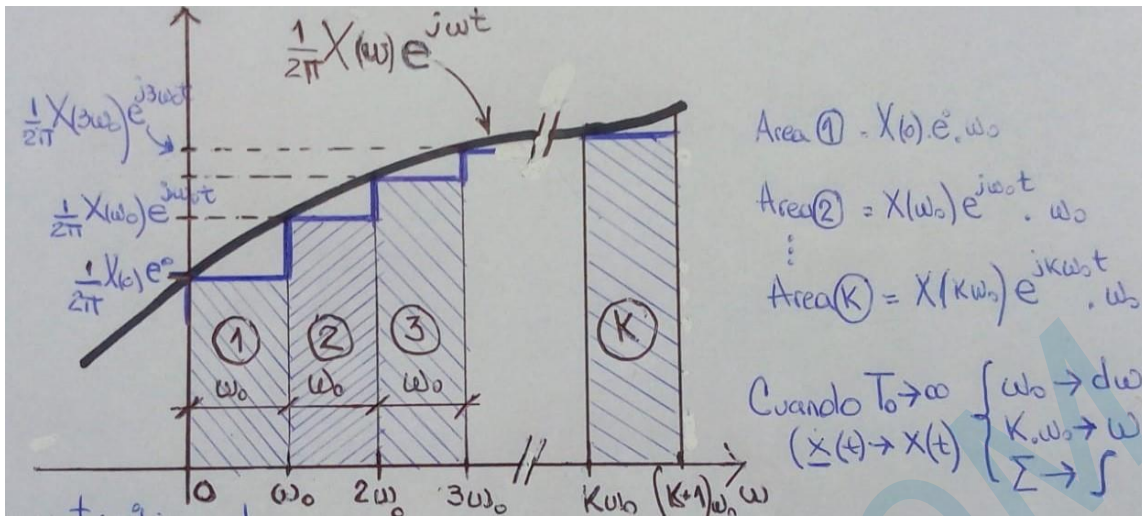 1/2π X(ω) e^{jωt}
1/2π X(3ω₀) e^{j3ω₀t}
1/2π X(ω₀) e^{jω₀t}
1/2π X(0) e⁰
① ② ③ Ⓚ
ω₀ ω₀ ω₀
0 ω₀ 2ω₀ 3ω₀ Kω₀ (K+1)ω₀ ω
Area ① = X(0).e⁰.ω₀
Area ② = X(ω₀) e^{jω₀t} . ω₀
⋮
Area Ⓚ = X(Kω₀) e^{jKω₀t} . ω₀
Cuando T₀→∞ { ω₀ → dω
(x(t) → x(t) { K.ω₀ → ω
{ Σ → ∫